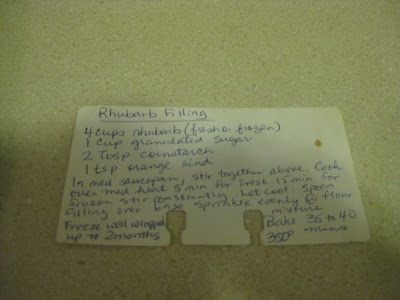 Rhubarb Filling
4 cups rhubarb (fresh or frozen)
1 cup granulated sugar
2 Tbsp cornstarch
1 tsp orange rind
In med saucepan, stir together above. Cook
over med heat 5 min for fresh 15 min for
frozen stir constantly, cool. Spoon
filling over base sprinkle evenly flour
mixture
Freeze well wrapped
up to 2 months
Bake 36 to 40
350° mins